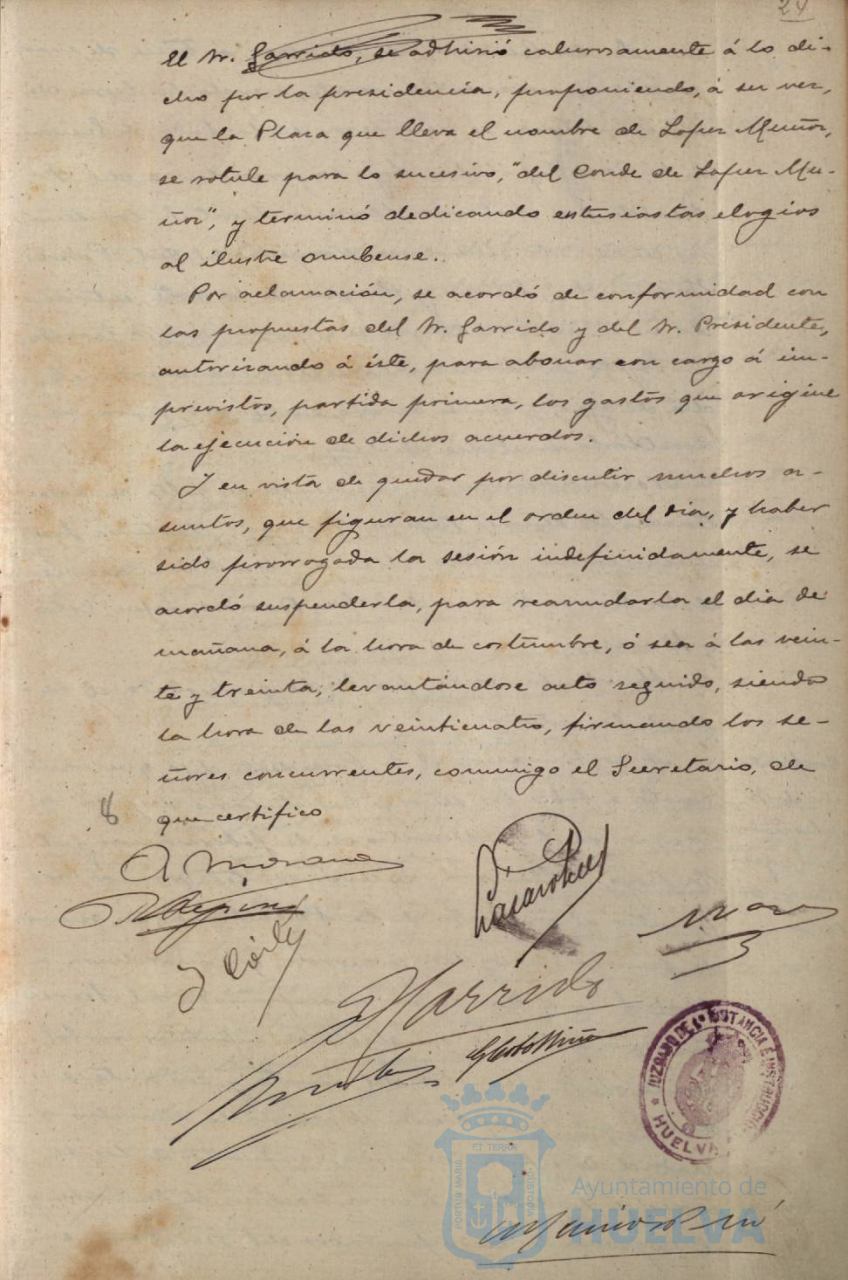 24
El Sr. Garrido, se adhirió calurosamente á lo di-
cho por la presidencia, proponiendo, á su vez,
que la Plaza que lleva el nombre de Lopez Muñoz,
se rotule para lo sucesivo, "del Conde de Lopez Mu-
ñoz", y terminó dedicando entusiastas elogios
al ilustre onubense.
Por aclamación, se acordó de conformidad con
las propuestas del Sr. Garrido y del Sr. Presidente,
autorizando á éste, para abonar con cargo á im-
previstos, partida primera, los gastos que origine
la ejecución de dichos acuerdos.
Y en vista de quedar por discutir muchos a-
suntos, que figuran en el orden del dia, y haber
sido prorrogada la sesión indefinidamente, se
acordó suspenderla, para reanudarla el dia de
mañana, á la hora de costumbre, ó sea á las vein-
te y treinta, levantándose acto seguido, siendo
la hora de las veinticuatro, firmando los se-
ñores concurrentes, conmigo el Secretario, de
que certifico
8
Garrido
JUZGADO DE 1ª INSTANCIA É INSTRUCCIÓN
HUELVA
ET TERRA
PORTUS MARIS
CUSTODIA
Ayuntamiento de
HUELVA